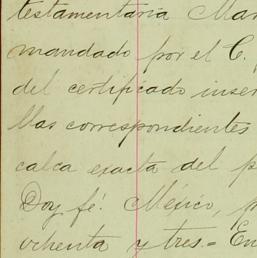 testamentaria Mar
mandado por el C.
del certificado inser
llas correspondientes
calca exacta del p
Doy fé. México,
ochenta y tres.= En